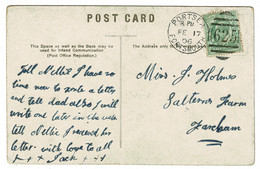 POST CARD
This Space as well as the Back may be
used for Inland Communication
(Post Office Regulation).
The Address only
PORTSE
FE 17
06
625
Tell Nellie I have no
time now to write a letter
and tell dad also I will
write one later in the week
tell Nellie I received her
letter. with love to all
x + x Jack x + x
Miss J. Holmes
Salterns Farm
Fareham